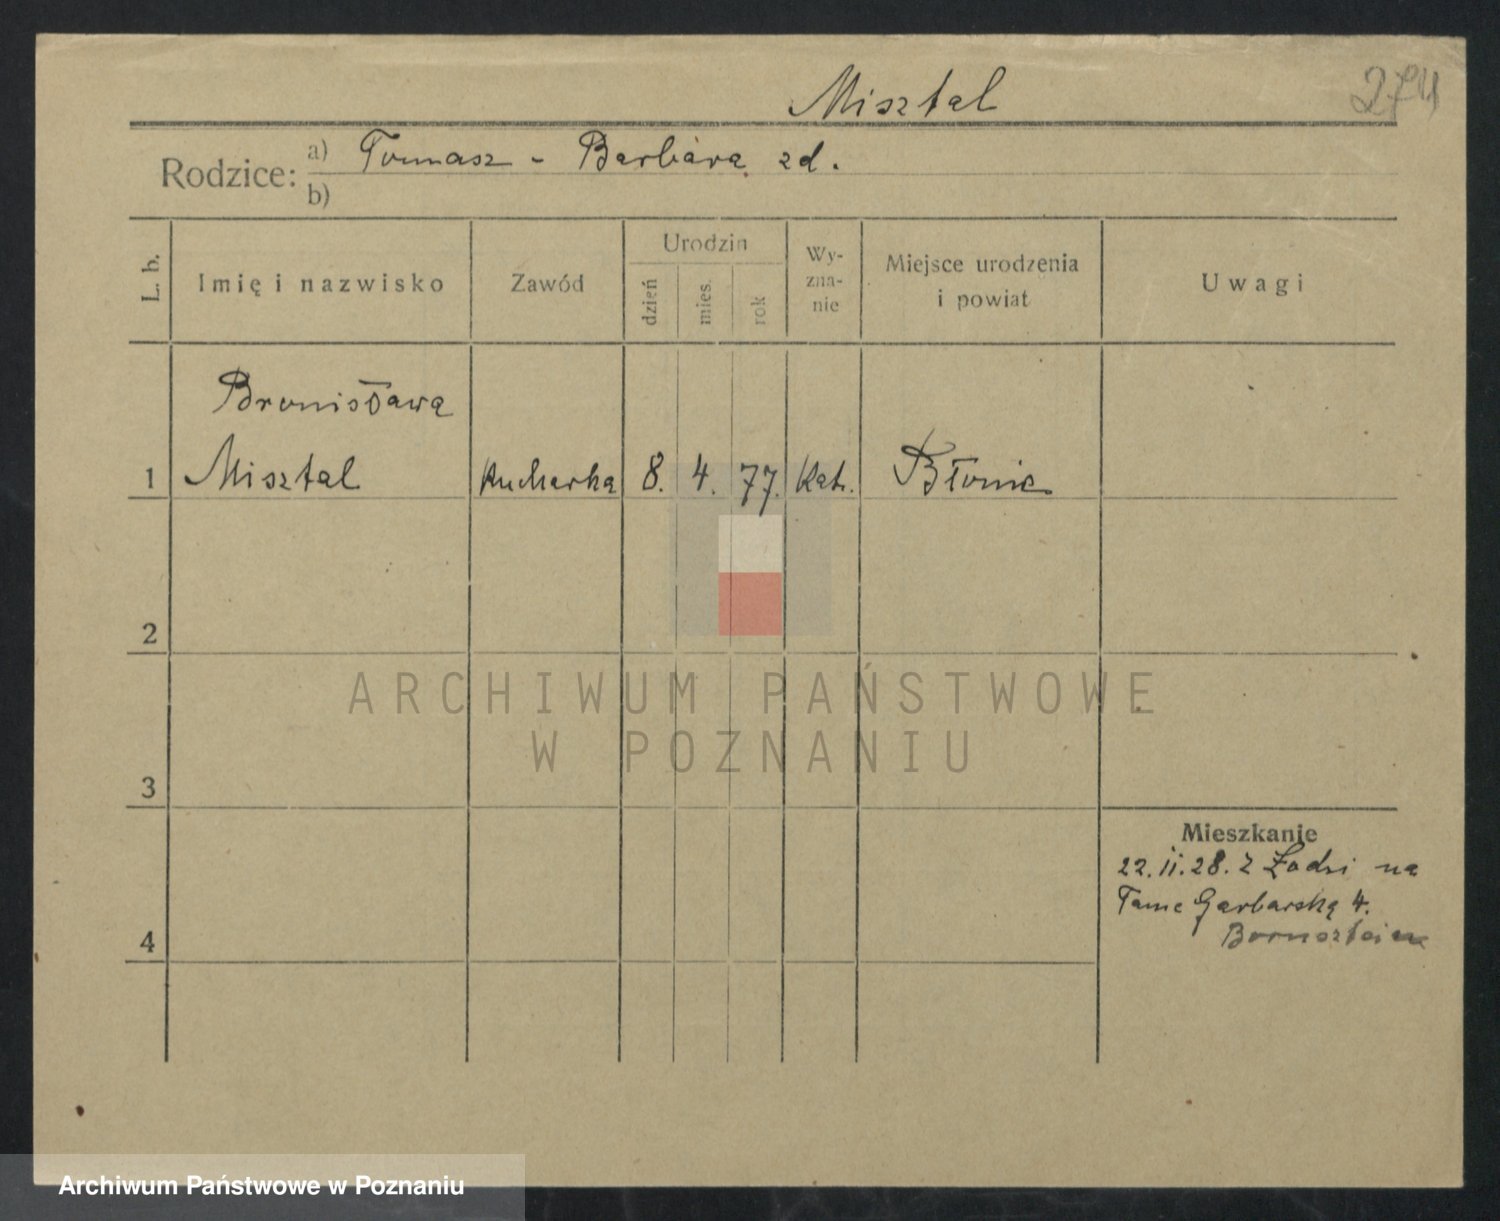 Misztal
274
Rodzice: a) Tomasz - Barbara zd.
b)
L. b.
Imię i nazwisko
Zawód
Urodzin
dzień
mies.
rok
Wy-
zna-
nie
Miejsce urodzenia
i powiat
Uwagi
Bronisława
1 Misztal kucharka 8. 4. 77. Kat. Błonie
2
3
4
Mieszkanie
22.11.28. z Łodzi na
Tamę Garbarską 4.
Bornsztein
ARCHIWUM PAŃSTWOWE
W POZNANIU
Archiwum Państwowe w Poznaniu